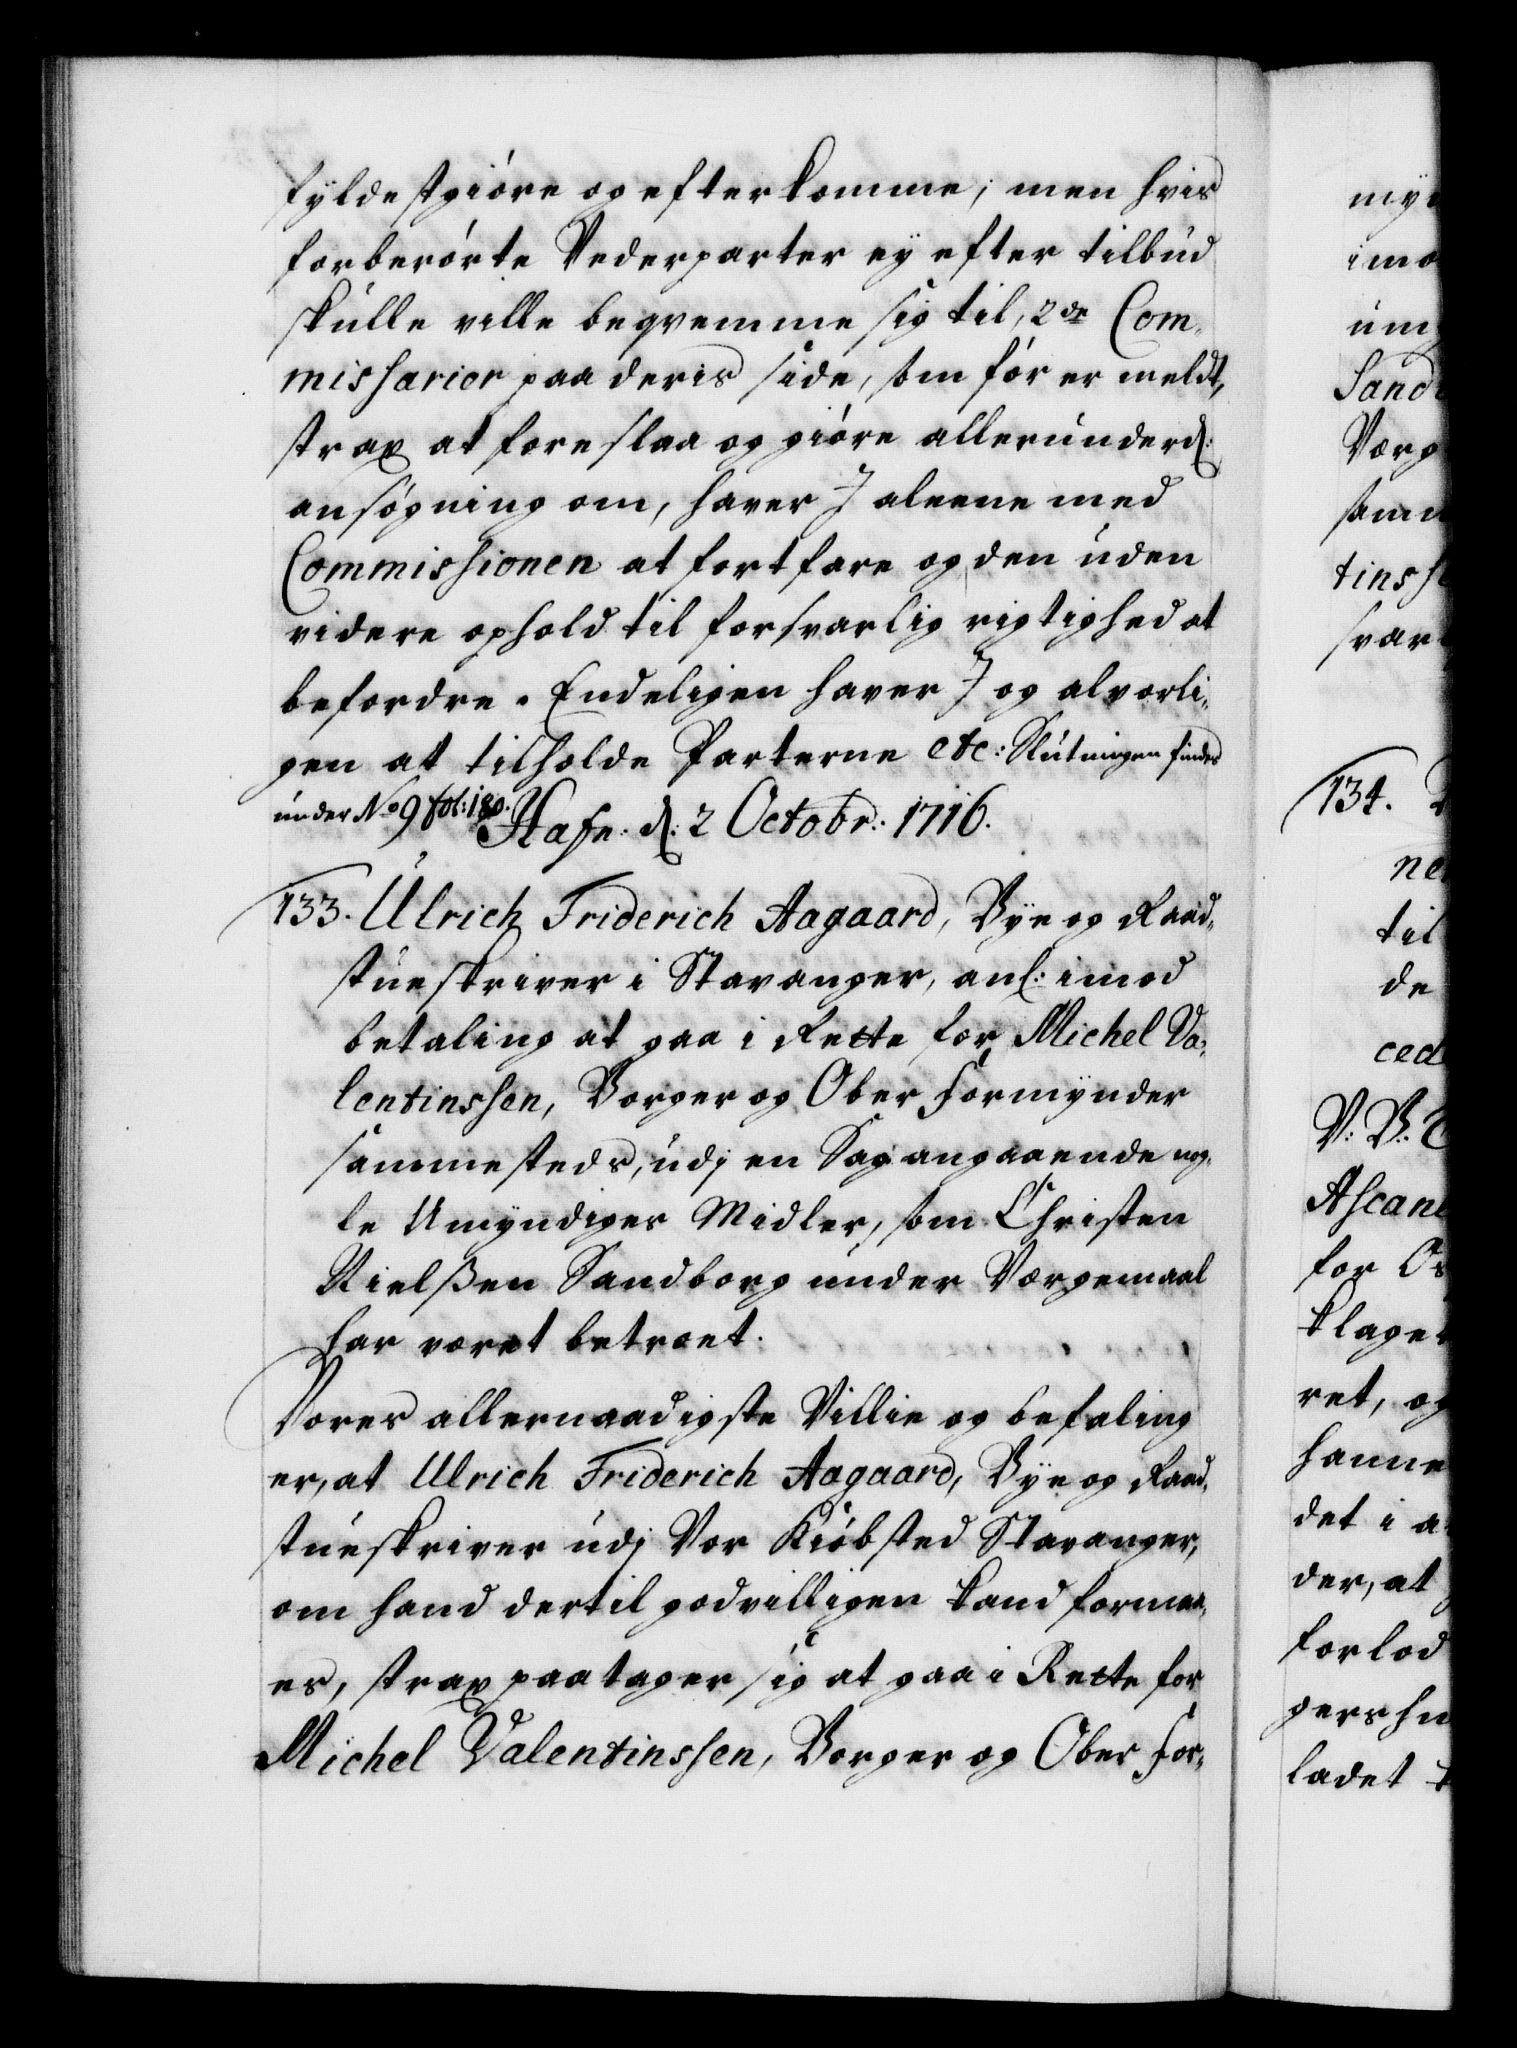 fyldestgiøre og efterkomme; men hvis
forberørte Vederparter ey efter tilbud
skulle ville beqvemme sig til, 2de Com-
missarier paa deris side, som før er meldt,
strax at foreslaa og giøre allerunderd:
ansøgning om, haver I aleene med
Commissionen at fortfare og den uden
videre ophold til forsvarlig rigtighed at
befordre. Endeligen haver I og alvorli-
gen at tilholde Parterne etc: Slutningen findes
under No 9 fol: 180.
Hafn: d: 2 Octobr: 1716.
133. Ulrich Friderich Aagaard, Bye og Raad-
stueskriver i Stavanger, anl: imod
betaling at gaa i Rette for Michel Va-
lentinssen, Borger og Ober Formynder
sammesteds, udj en Sag angaaende nog-
le Umyndiges Midler, som Christen
Nielßen Sandborg under Værgemaal
har været betroet.
Vores allernaadigste Villie og befaling
er, at Ulrich Friderich Aagaard, Bye og Raad-
stueskriver udj Vor Kiøbsted Stavanger,
om hand dertil godvilligen kand formaa-
es, strax paatager sig at gaa i Rette for
Michel Valentinssen, Borger og Ober For-
134.
til
de
for
det i
der, at
forlod
ladet